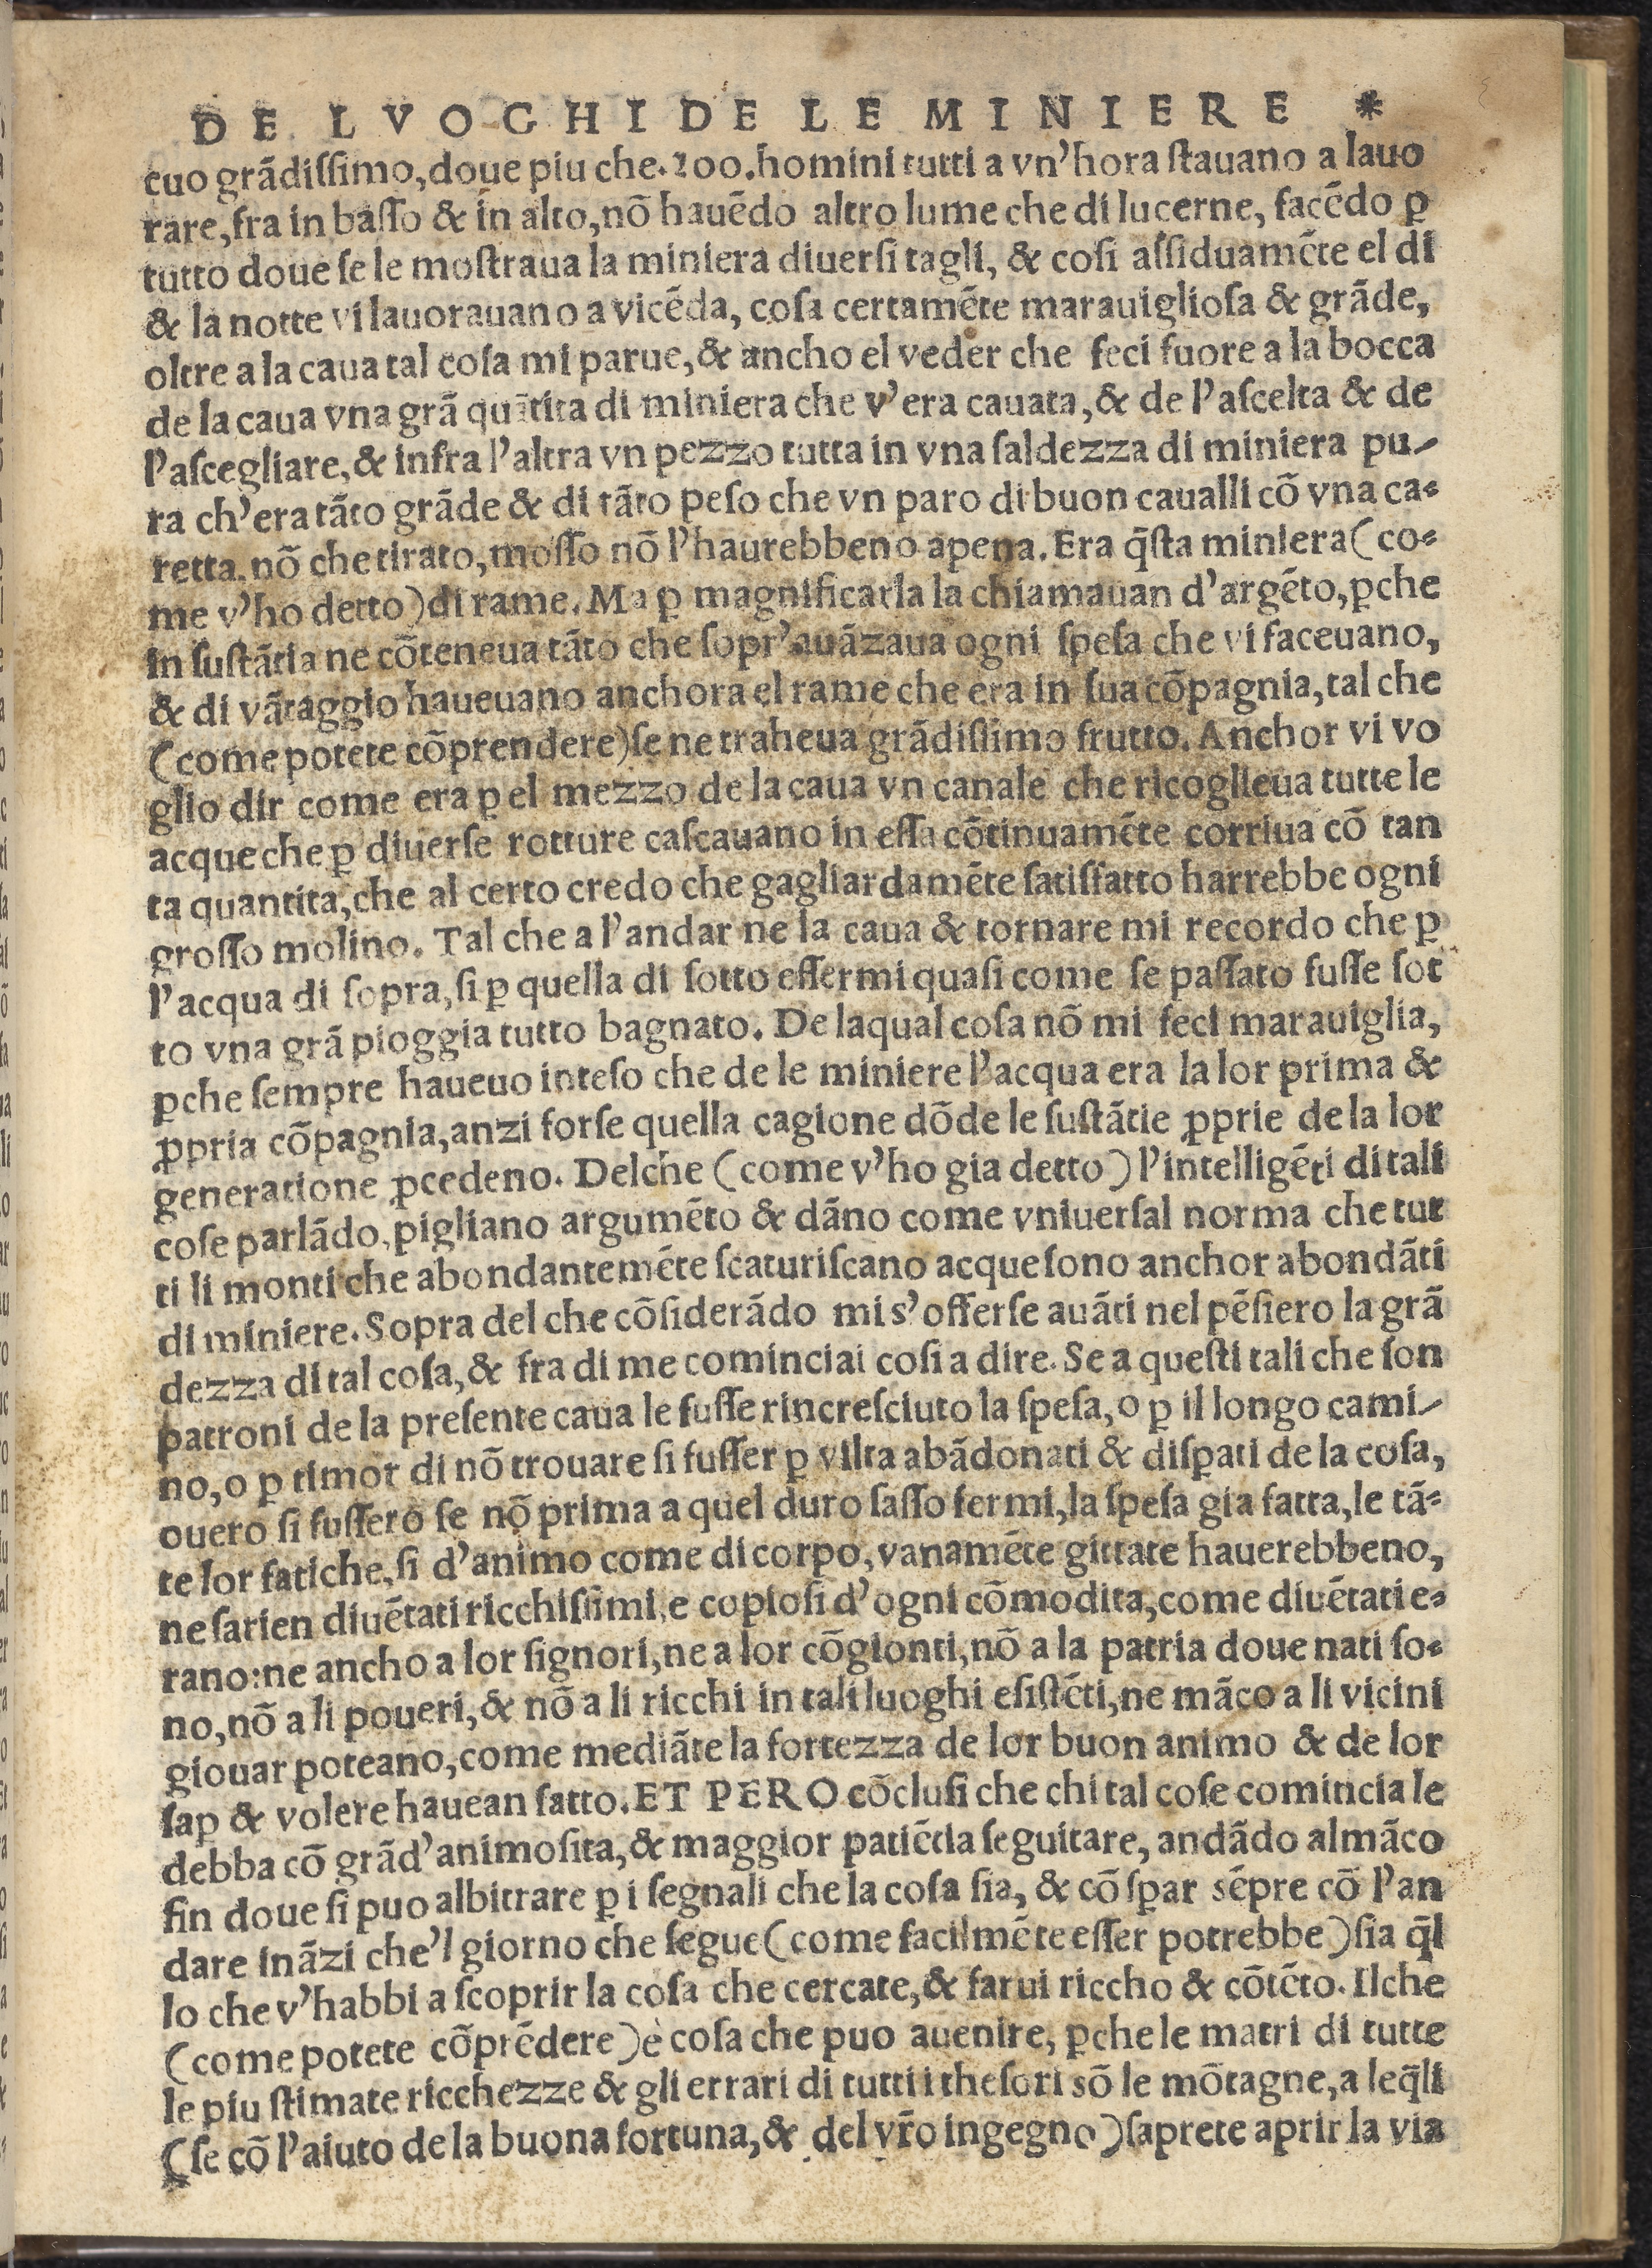 DE LVOGHI DE LE MINIERE *
cuo grãdiſſimo, doue piu che. 200. homini tutti a vn'hora ſtauano a lauo
rare, fra in baſſo & in alto, nõ hauẽdo altro lume che di lucerne, facẽdo ꝑ
tutto doue ſe le moſtraua la miniera diuerſi tagli, & coſi aſſiduamẽte el di
& la notte vi lauorauano a vicẽda, coſa certamẽte marauiglioſa & grãde,
oltre a la caua tal coſa mi parue, & ancho el veder che feci fuore a la bocca
de la caua vna grã quãtita di miniera che v'era cauata, & de l'aſcelta & de
l'aſcegliare, & infra l'altra vn pezzo tutta in vna ſaldezza di miniera pu-
ra ch'era tãto grãde & di tãto peſo che vn paro di buon caualli cõ vna ca-
retta, nõ che tirato, moſſo nõ l'haurebbeno apena. Era q̃ſta miniera (co-
me v'ho detto) di rame. Ma ꝑ magnificarla la chiamauan d'argẽto, ꝑche
in ſuſtãtia ne cõteneua tãto che ſopr'auãzaua ogni ſpeſa che vi faceuano,
& di vãtaggio haueuano anchora el rame che era in ſua cõpagnia, tal che
(come potete cõprendere) ſe ne traheua grãdiſſimo frutto. Anchor vi vo
glio dir come era ꝑ el mezzo de la caua vn canale che ricoglieua tutte le
acque che ꝑ diuerſe rotture caſcauano in eſſa cõtinuamẽte corriua cõ tan
ta quantita, che al certo credo che gagliardamẽte ſatiſfatto harrebbe ogni
groſſo molino. Tal che a l'andar ne la caua & tornare mi recordo che ꝑ
l'acqua di ſopra, ſi ꝑ quella di ſotto eſſermi quaſi come ſe paſſato fuſſe ſot
to vna grã pioggia tutto bagnato. De laqual coſa nõ mi feci marauiglia,
ꝑche ſempre haueuo inteſo che de le miniere l'acqua era la lor prima &
ꝓpria cõpagnia, anzi forſe quella cagione dõde le ſuſtãtie ꝓprie de la lor
generatione ꝓcedeno. Delche (come v'ho gia detto) l'intelligẽti di tali
coſe parlãdo, pigliano argumẽto & dãno come vniuerſal norma che tut
ti li monti che abondantemẽte ſcaturiſcano acque ſono anchor abondãti
di miniere. Sopra del che cõſiderãdo mi s'offerſe auãti nel pẽſiero la grã
dezza di tal coſa, & fra di me cominciai coſi a dire. Se a queſti tali che ſon
patroni de la preſente caua le fuſſe rincreſciuto la ſpeſa, o ꝑ il longo cami-
no, o ꝑ timor di nõ trouare ſi fuſſer ꝑ vilta abãdonati & diſꝑati de la coſa,
ouero ſi fuſſero ſe nõ prima a quel duro ſaſſo fermi, la ſpeſa gia fatta, le tã-
te lor fatiche, ſi d'animo come di corpo, vanamẽte gittate hauerebbeno,
ne ſarien diuẽtati ricchiſſimi, e copioſi d'ogni cõmodita, come diuẽtati e-
rano: ne ancho a lor ſignori, ne a lor cõgionti, nõ a la patria doue nati ſo-
no, nõ a li poueri, & nõ a li ricchi in tali luoghi eſiſtẽti, ne mãco a li vicini
giouar poteano, come mediãte la fortezza de lor buon animo & de lor
ſaꝑ & volere hauean fatto. ET PERO cõcluſi che chi tal coſe comincia le
debba cõ grãd'animoſita, & maggior patiẽtia ſeguitare, andãdo almãco
fin doue ſi puo albitrare ꝑ i ſegnali che la coſa ſia, & cõ ſꝑar sẽpre cõ l'an
dare inãzi che'l giorno che ſegue (come facilmẽte eſſer potrebbe) ſia q̃l
lo che v'habbi a ſcoprir la coſa che cercate, & farui riccho & cõtẽto. Ilche
(come potete cõprẽdere) è coſa che puo auenire, ꝑche le matri di tutte
le piu ſtimate ricchezze & gli errari di tutti i theſori sõ le mõtagne, a leq̃li
(ſe cõ l'aiuto de la buona fortuna, & del vr̃o ingegno) ſaprete aprir la via